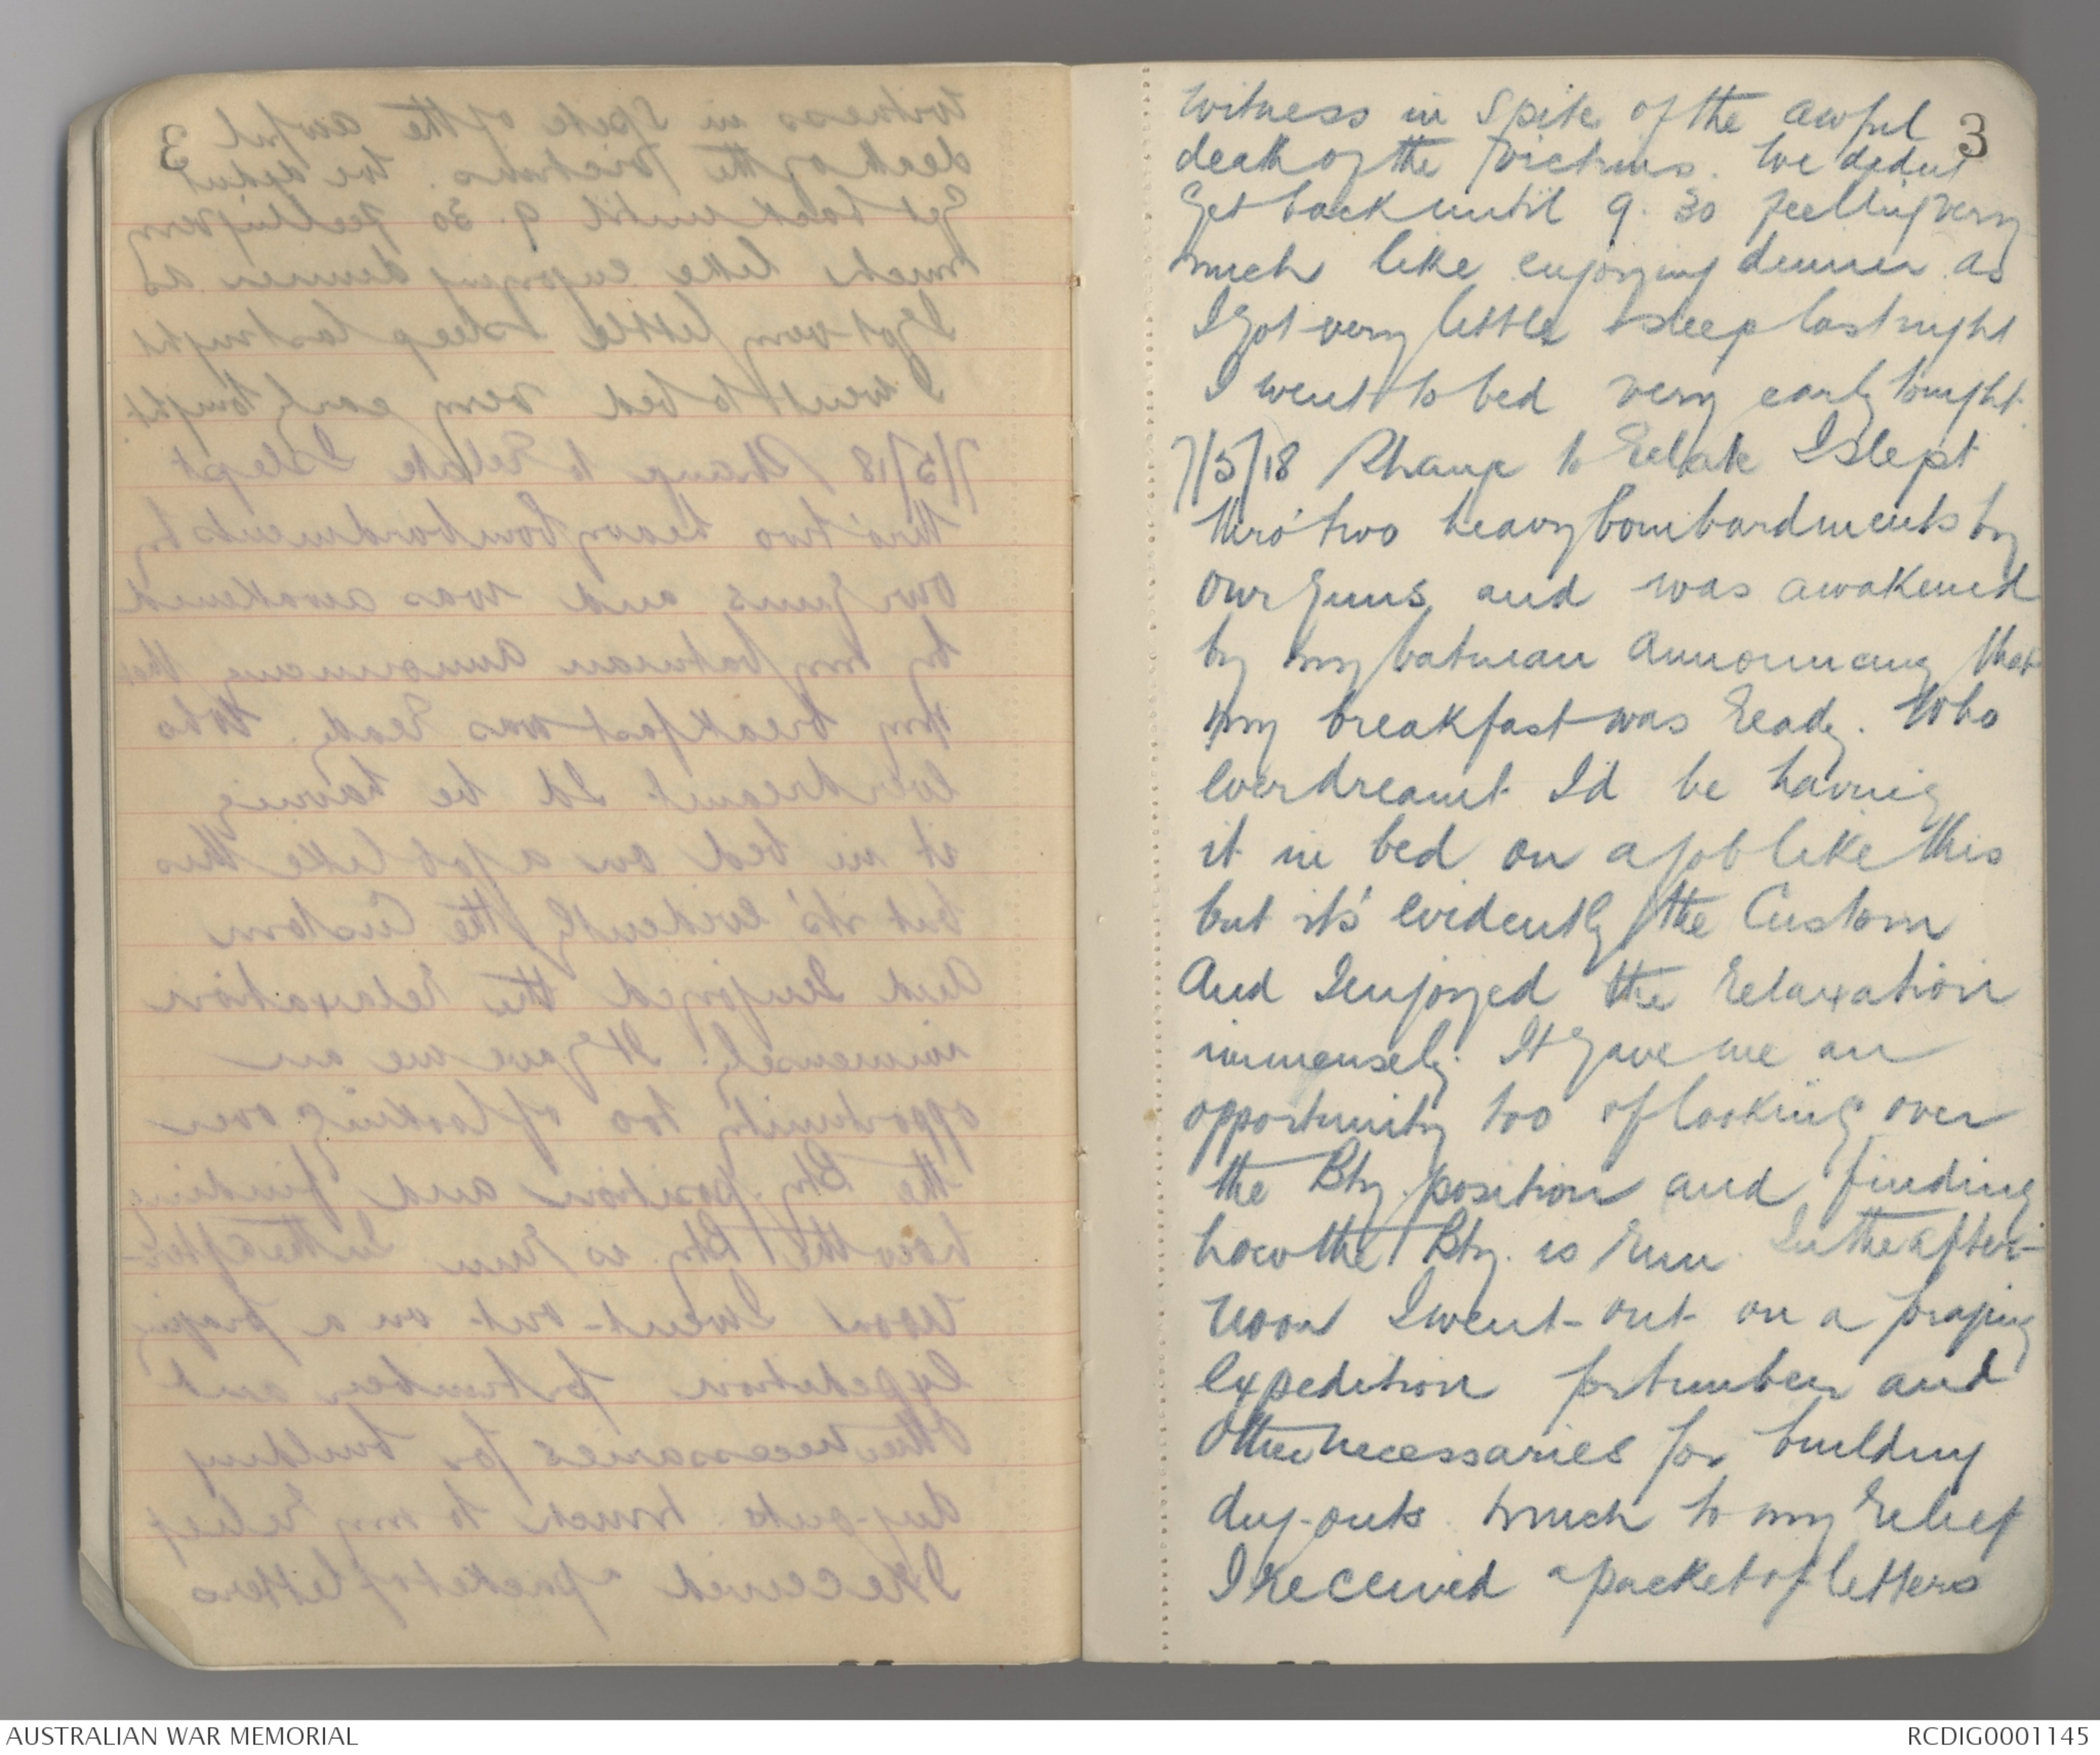 3
witness in spite of the awful
death of the victims. We didnt
get back until 9.30 feeling very
much like enjoying dinner as
I got very little sleep last night
I went to bed very early tonight.
7/5/18 Strange to relate I slept
thro' two heavy bombardments by
our guns and was awakened
by my batman announcing that
my breakfast was ready. Who
ever dreamt I'd be having
it in bed on a job like this
but its' evidently the Custom
And I enjoyed the relaxation
immensely. It gave me an
opportunity too of looking over
the Bty. position and finding
how the Bty. is run. In the after-
noon I went out on a foraging
expedition for timber and
other necessaries for building
dug-outs. Much to my relief
I received a packet of letters
AUSTRALIAN WAR MEMORIAL
RCDIG0001145